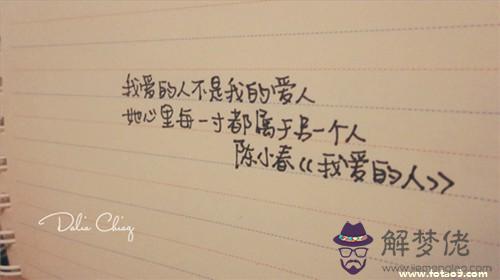 我爱的人不是我的爱人
她心里每一寸都属于另一个人
陈小春《我爱的人》
Dalia Chiaq
解梦佬
www.jiemenglao.com
www.fotao9.com